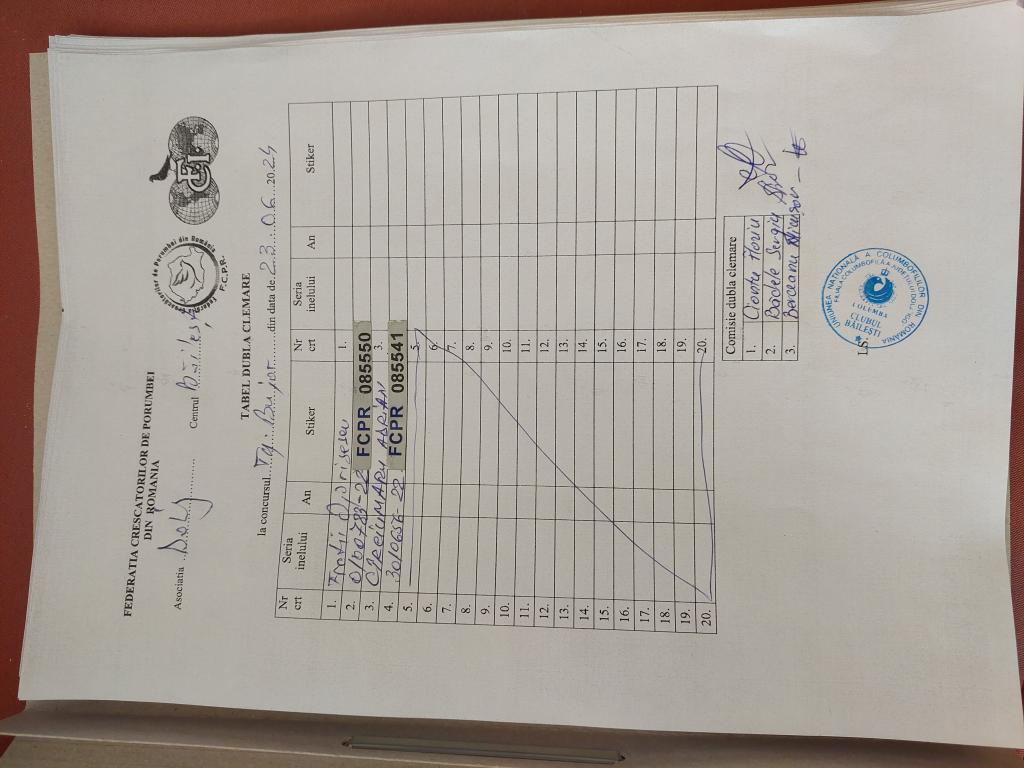 FEDERATIA CRESCATORILOR DE PORUMBEI
DIN ROMANIA
Asociatia Dolj Centrul Băilești
Crescatorilor de Porumbei din România
F.C.P.R.
FCI
TABEL DUBLA CLEMARE
la concursul Tg. Bujor din data de 23.06.2024
Nr crt Seria inelului An Stiker Nr crt Seria inelului An Stiker
1. Frații Oprisescu 1.
2. 0100783-22 FCPR 085550
3. CÎRCIUMARU ADRIAN 3.
4. 3010656-22 FCPR 085541
5. 5.
6. 6.
7. 7.
8. 8.
9. 9.
10. 10.
11. 11.
12. 12.
13. 13.
14. 14.
15. 15.
16. 16.
17. 17.
18. 18.
19. 19.
20. 20.
Comisie dubla clemare
1. Florin
2. Bădele Sergiu
3. Berceanu
LS.
UNIUNEA NATIONALA A COLUMBOFILILOR DIN ROMANIA
FILIALA COLUMBOFILA A JUDETULUI DOLJ
COLUMBA
CLUBUL
BĂILEȘTI